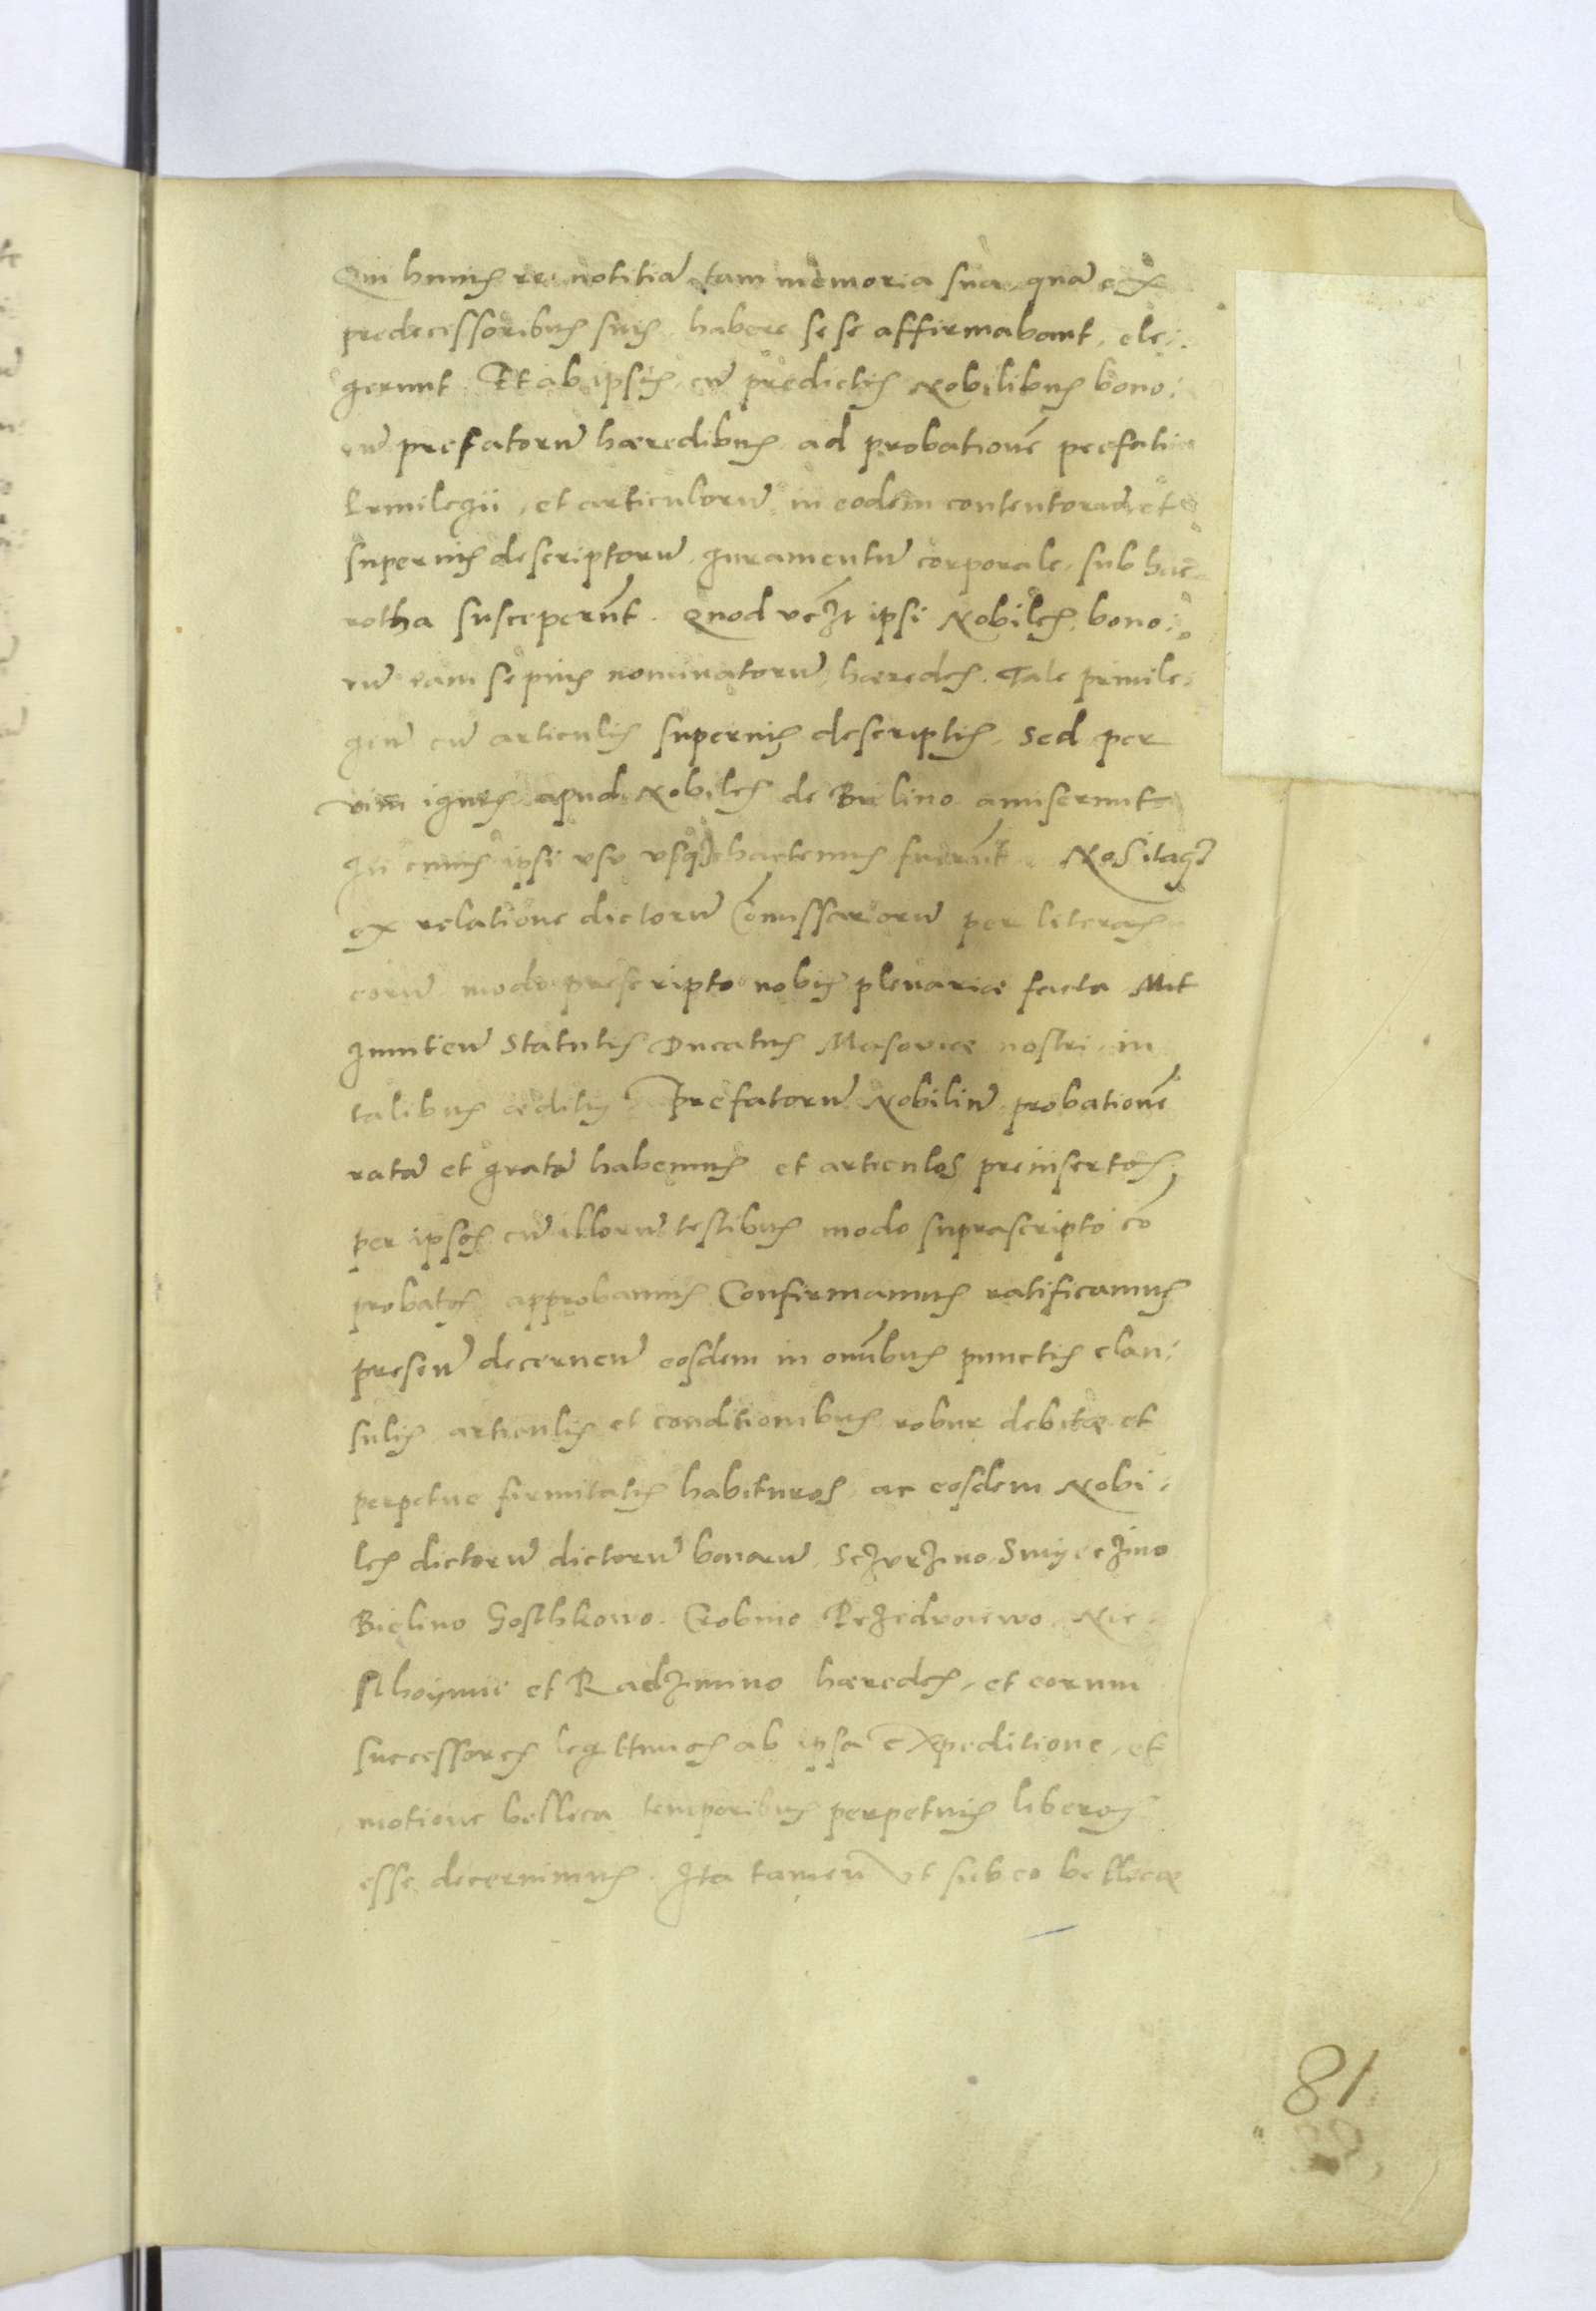 Qui huius rei notitiā tam memoria sua, quā ex
predecessoribus suis habere sese affirmabant, ele:
gerunt. Et ab ipsis, cū predictis Nobilibus bono:
rū prefatorū hæredibus ad probationē prefati
privilegii, et articulorū in eodem contentorū et
superius descriptorū, iuramentū corporale, sub hac
rotha susceperūt. Quod ipsi Nobiles, bono:
rū iam sepius nominatorū, hæredes. Tale privile:
giū cū articulis superius descriptis, sed per
vim ignis apud Nobiles de Bielino amiserunt
In cuius ipsi usu usq3 hactenus fuerūt. Nos itaq3
ex relatione dictorū Cōmissariorū per literas
eorū modo prescripto nobis plenariæ facta
Statutis Ducatus Masoviæ nostri in
talibus æditis Prefatorū Nobiliū probationē
ratā et gratā habemus et articulos preinsertos,
per ipsos cū illorū testibus modo suprascripto cō
probatos approbamus Confirmamus ratificamus
decernen̄ eosdem in omībus punctis clau:
sulis articulis et conditionibus robur debitæ et
perpetue firmitatis habituros, ac eosdem Nobi:
les dictorū dictorū bonorū Sczurzino Smyeczino
Bielino Goschkowo. Crobino Nie:
sthoymie et Radzimino hæredes, et eorum
successores legittimos ab ipsa expeditione, et
motione bellica temporibus perpetuis liberos
esse decernimus. Ita tamen ut sub eo bellicæ
81